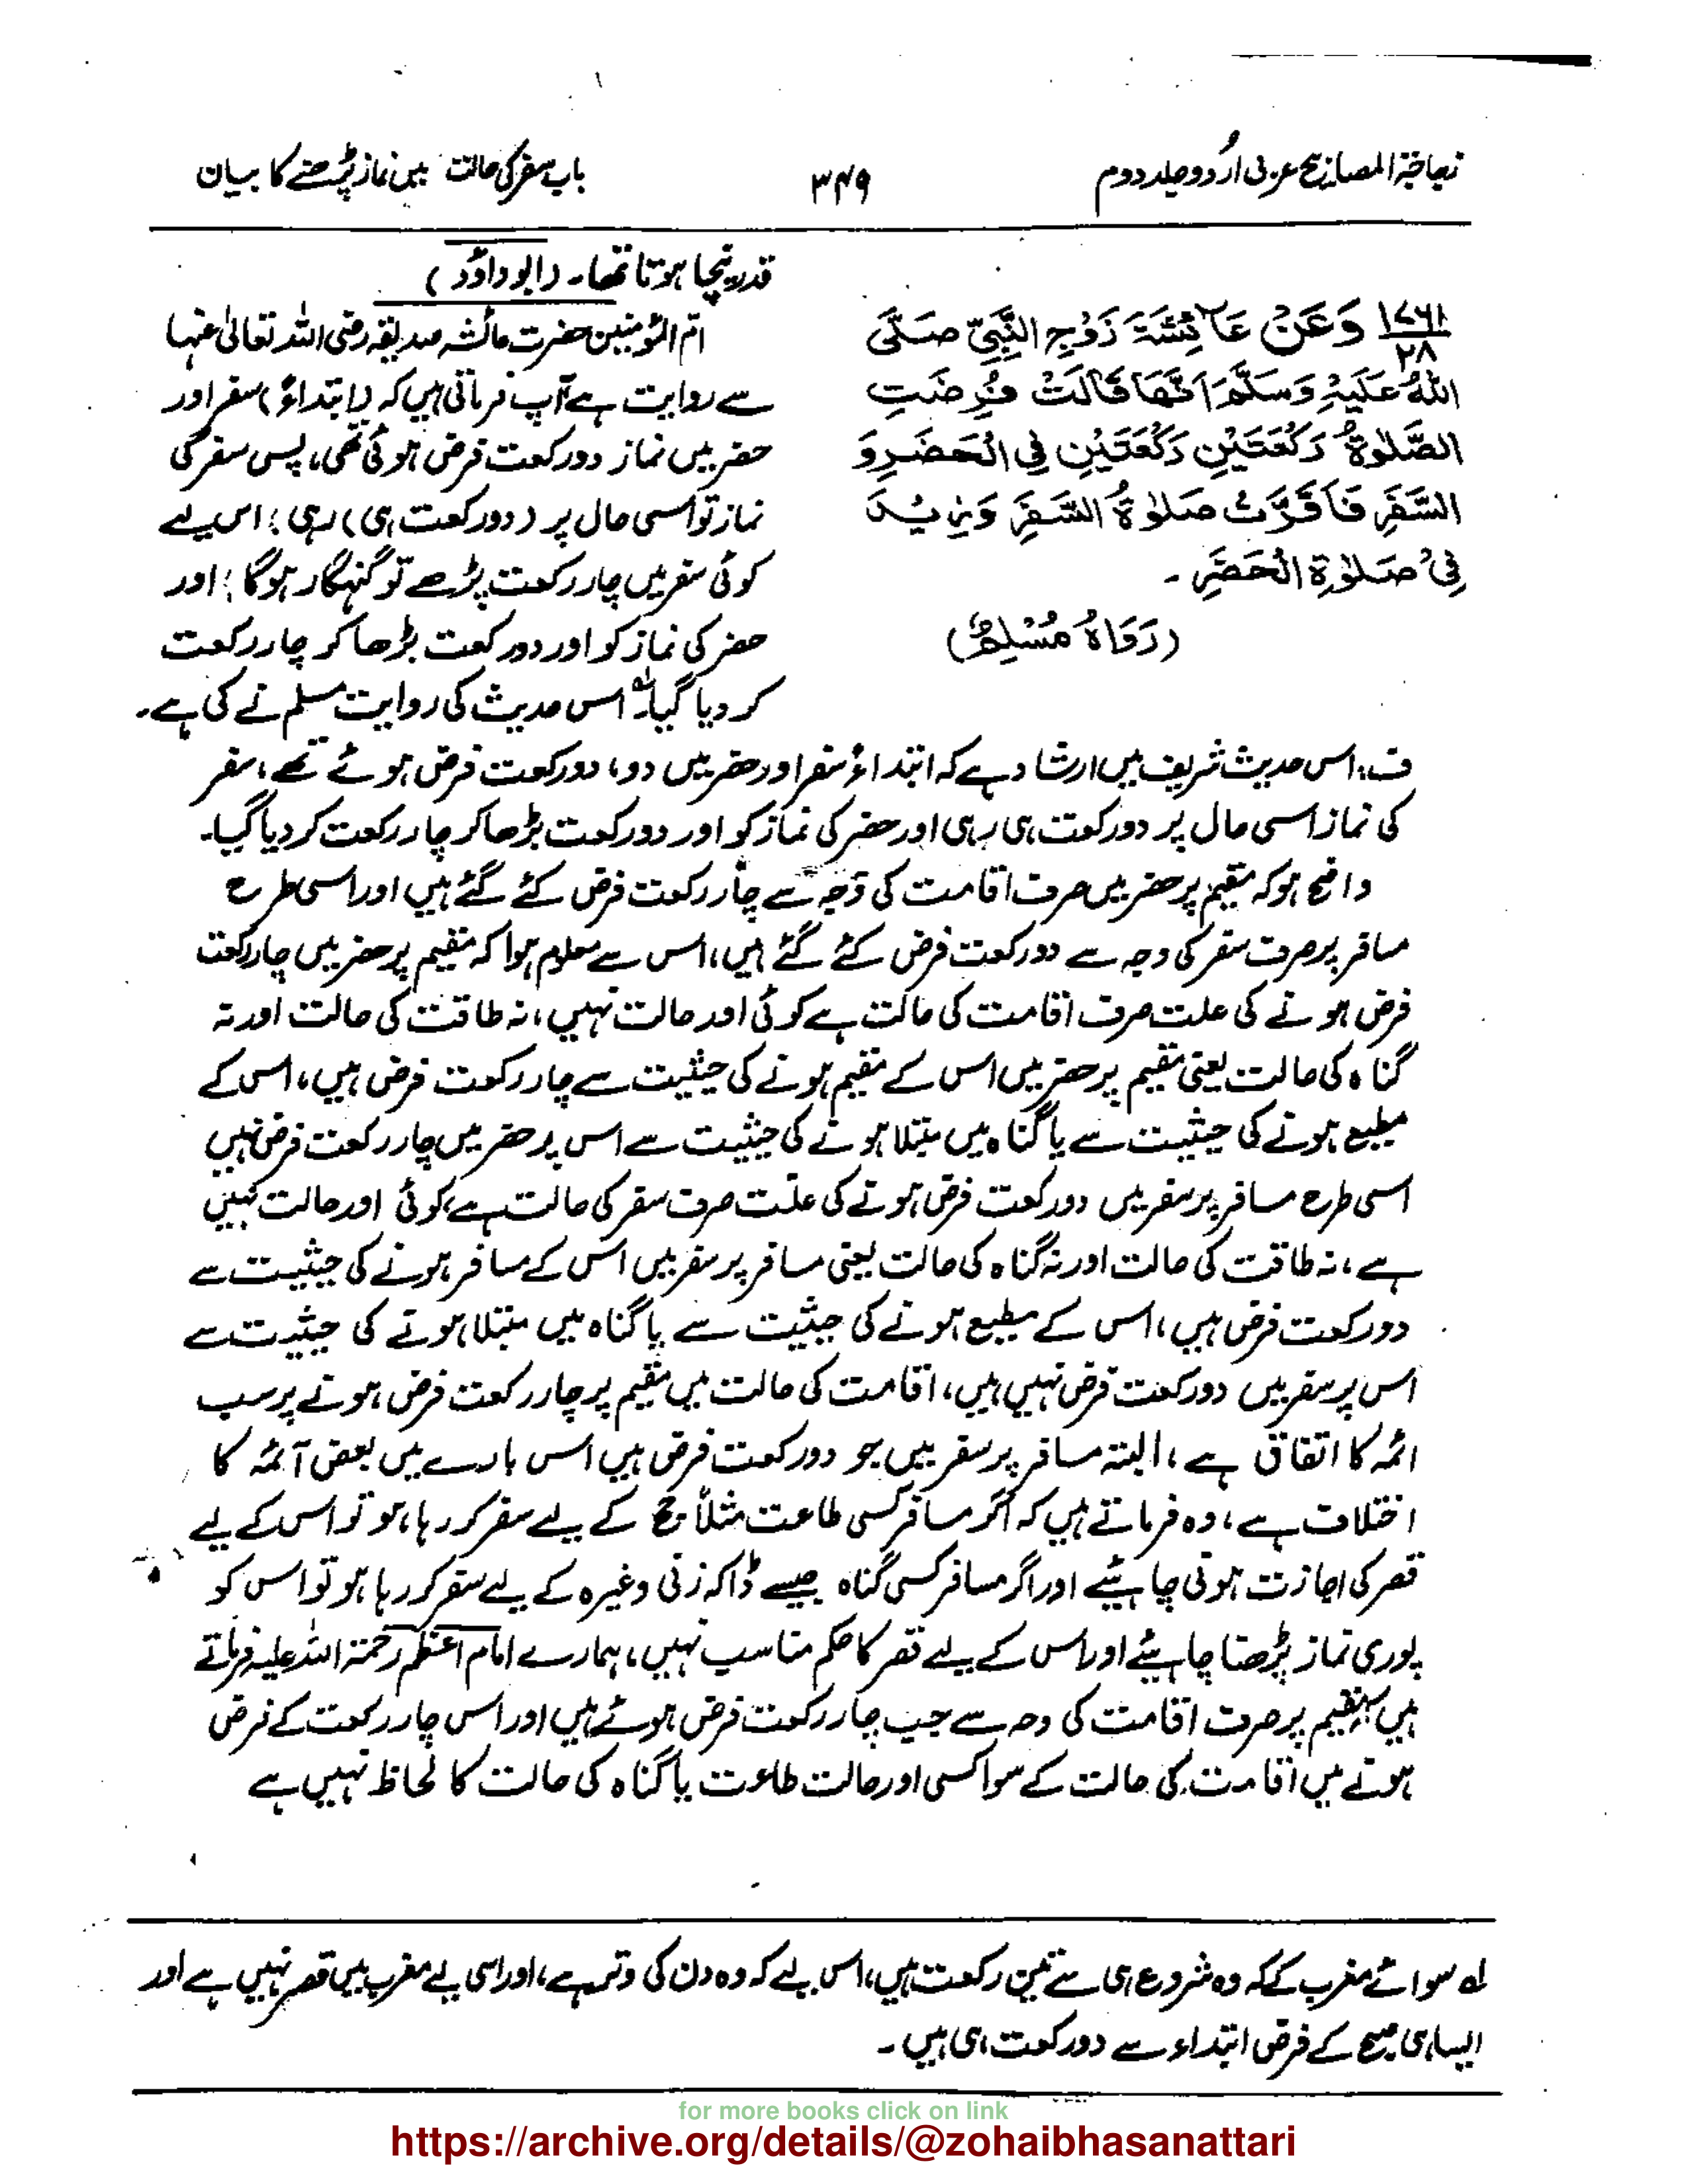 زجاجۃ المصابیح عربی اردو جلد دوم
۳۴۹
باب سفر کی حالت میں نماز پڑھنے کا بیان
قدر نیچا ہوتا تھا۔ (ابو داؤد)
۱۷۶۱/۲۸ وَعَنْ عَائِشَةَ زَوْجِ النَّبِيِّ صَلَّى
اللهُ عَلَيْهِ وَسَلَّمَ اَنَّهَا قَالَتْ فُرِضَتِ
الصَّلٰوةُ رَكْعَتَيْنِ رَكْعَتَيْنِ فِي الْحَضَرِ وَ
السَّفَرِ فَاَقَرَّتْ صَلٰوةُ السَّفَرِ وَزِيْدَ
فِيْ صَلٰوةِ الْحَضَرِ۔
(رَوَاهُ مُسْلِمٌ)
ام المؤمنین حضرت عائشہ صدیقہ رضی اللہ تعالیٰ عنہا
سے روایت ہے آپ فرماتی ہیں کہ (ابتداءً) سفر اور
حضر میں نماز دو رکعت فرض ہوئی تھی، پس سفر کی
نماز تو اسی حال پر (دو رکعت ہی) رہی؛ اس لیے
کوئی سفر میں چار رکعت پڑھے تو گنہگار ہوگا؛ اور
حضر کی نماز کو اور دو رکعت بڑھا کر چار رکعت
کر دیا گیا۔ لہ اس حدیث کی روایت مسلم نے کی ہے۔
ف: اس حدیث شریف میں ارشاد ہے کہ ابتداءً سفر اور حضر میں دو، دو رکعت فرض ہوئے تھے، سفر
کی نماز اسی حال پر دو رکعت ہی رہی اور حضر کی نماز کو اور دو رکعت بڑھا کر چار رکعت کر دیا گیا۔
واضح ہو کہ مقیم پر حضر میں صرف اقامت کی وجہ سے چار رکعت فرض کئے گئے ہیں اور اسی طرح
مسافر پر صرف سفر کی وجہ سے دو رکعت فرض کئے گئے ہیں، اس سے معلوم ہوا کہ مقیم پر حضر میں چار رکعت
فرض ہونے کی علت صرف اقامت کی حالت ہے کوئی اور حالت نہیں، نہ طاقت کی حالت اور نہ
گناہ کی حالت یعنی مقیم پر حضر میں اس کے مقیم ہونے کی حیثیت سے چار رکعت فرض ہیں، اس کے
مطیع ہونے کی حیثیت سے یا گناہ میں مبتلا ہونے کی حیثیت سے اس پر حضر میں چار رکعت فرض نہیں
اسی طرح مسافر پر سفر میں دو رکعت فرض ہونے کی علّت صرف سفر کی حالت ہے، کوئی اور حالت نہیں
ہے، نہ طاقت کی حالت اور نہ گناہ کی حالت یعنی مسافر پر سفر میں اس کے مسافر ہونے کی حیثیت سے
دو رکعت فرض ہیں، اس کے مطیع ہونے کی حیثیت سے یا گناہ میں مبتلا ہونے کی حیثیت سے
اس پر سفر میں دو رکعت فرض نہیں ہیں، اقامت کی حالت میں مقیم پر چار رکعت فرض ہونے پر سب
ائمہ کا اتفاق ہے، البتہ مسافر پر سفر میں جو دو رکعت فرض ہیں اس بارے میں بعض آئمہ کا
اختلاف ہے، وہ فرماتے ہیں کہ اگر مسافر کسی طاعت مثلاً حج کے لیے سفر کر رہا ہو تو اس کے لیے
قصر کی اجازت ہونی چاہئیے اور اگر مسافر کسی گناہ جیسے ڈاکہ زنی وغیرہ کے لیے سفر کر رہا ہو تو اس کو
پوری نماز پڑھنا چاہئیے اور اس کے لیے قصر کا حکم مناسب نہیں، ہمارے امام اعظم رحمۃ اللہ علیہ فرماتے
ہیں کہ مقیم پر صرف اقامت کی وجہ سے جب چار رکعت فرض ہوئے ہیں اور اس چار رکعت کے فرض
ہونے میں اقامت کی حالت کے سوا کسی اور حالت طاعت یا گناہ کی حالت کا لحاظ نہیں ہے
لہ سوائے مغرب کے کہ وہ شروع ہی سے تین رکعت ہیں، اس لیے کہ وہ دن کی وتر ہے، اور اسی لیے مغرب میں قصر نہیں ہے اور
ایسا ہی صبح کے فرض ابتداء سے دو رکعت ہی ہیں۔
for more books click on link
https://archive.org/details/@zohaibhasanattari